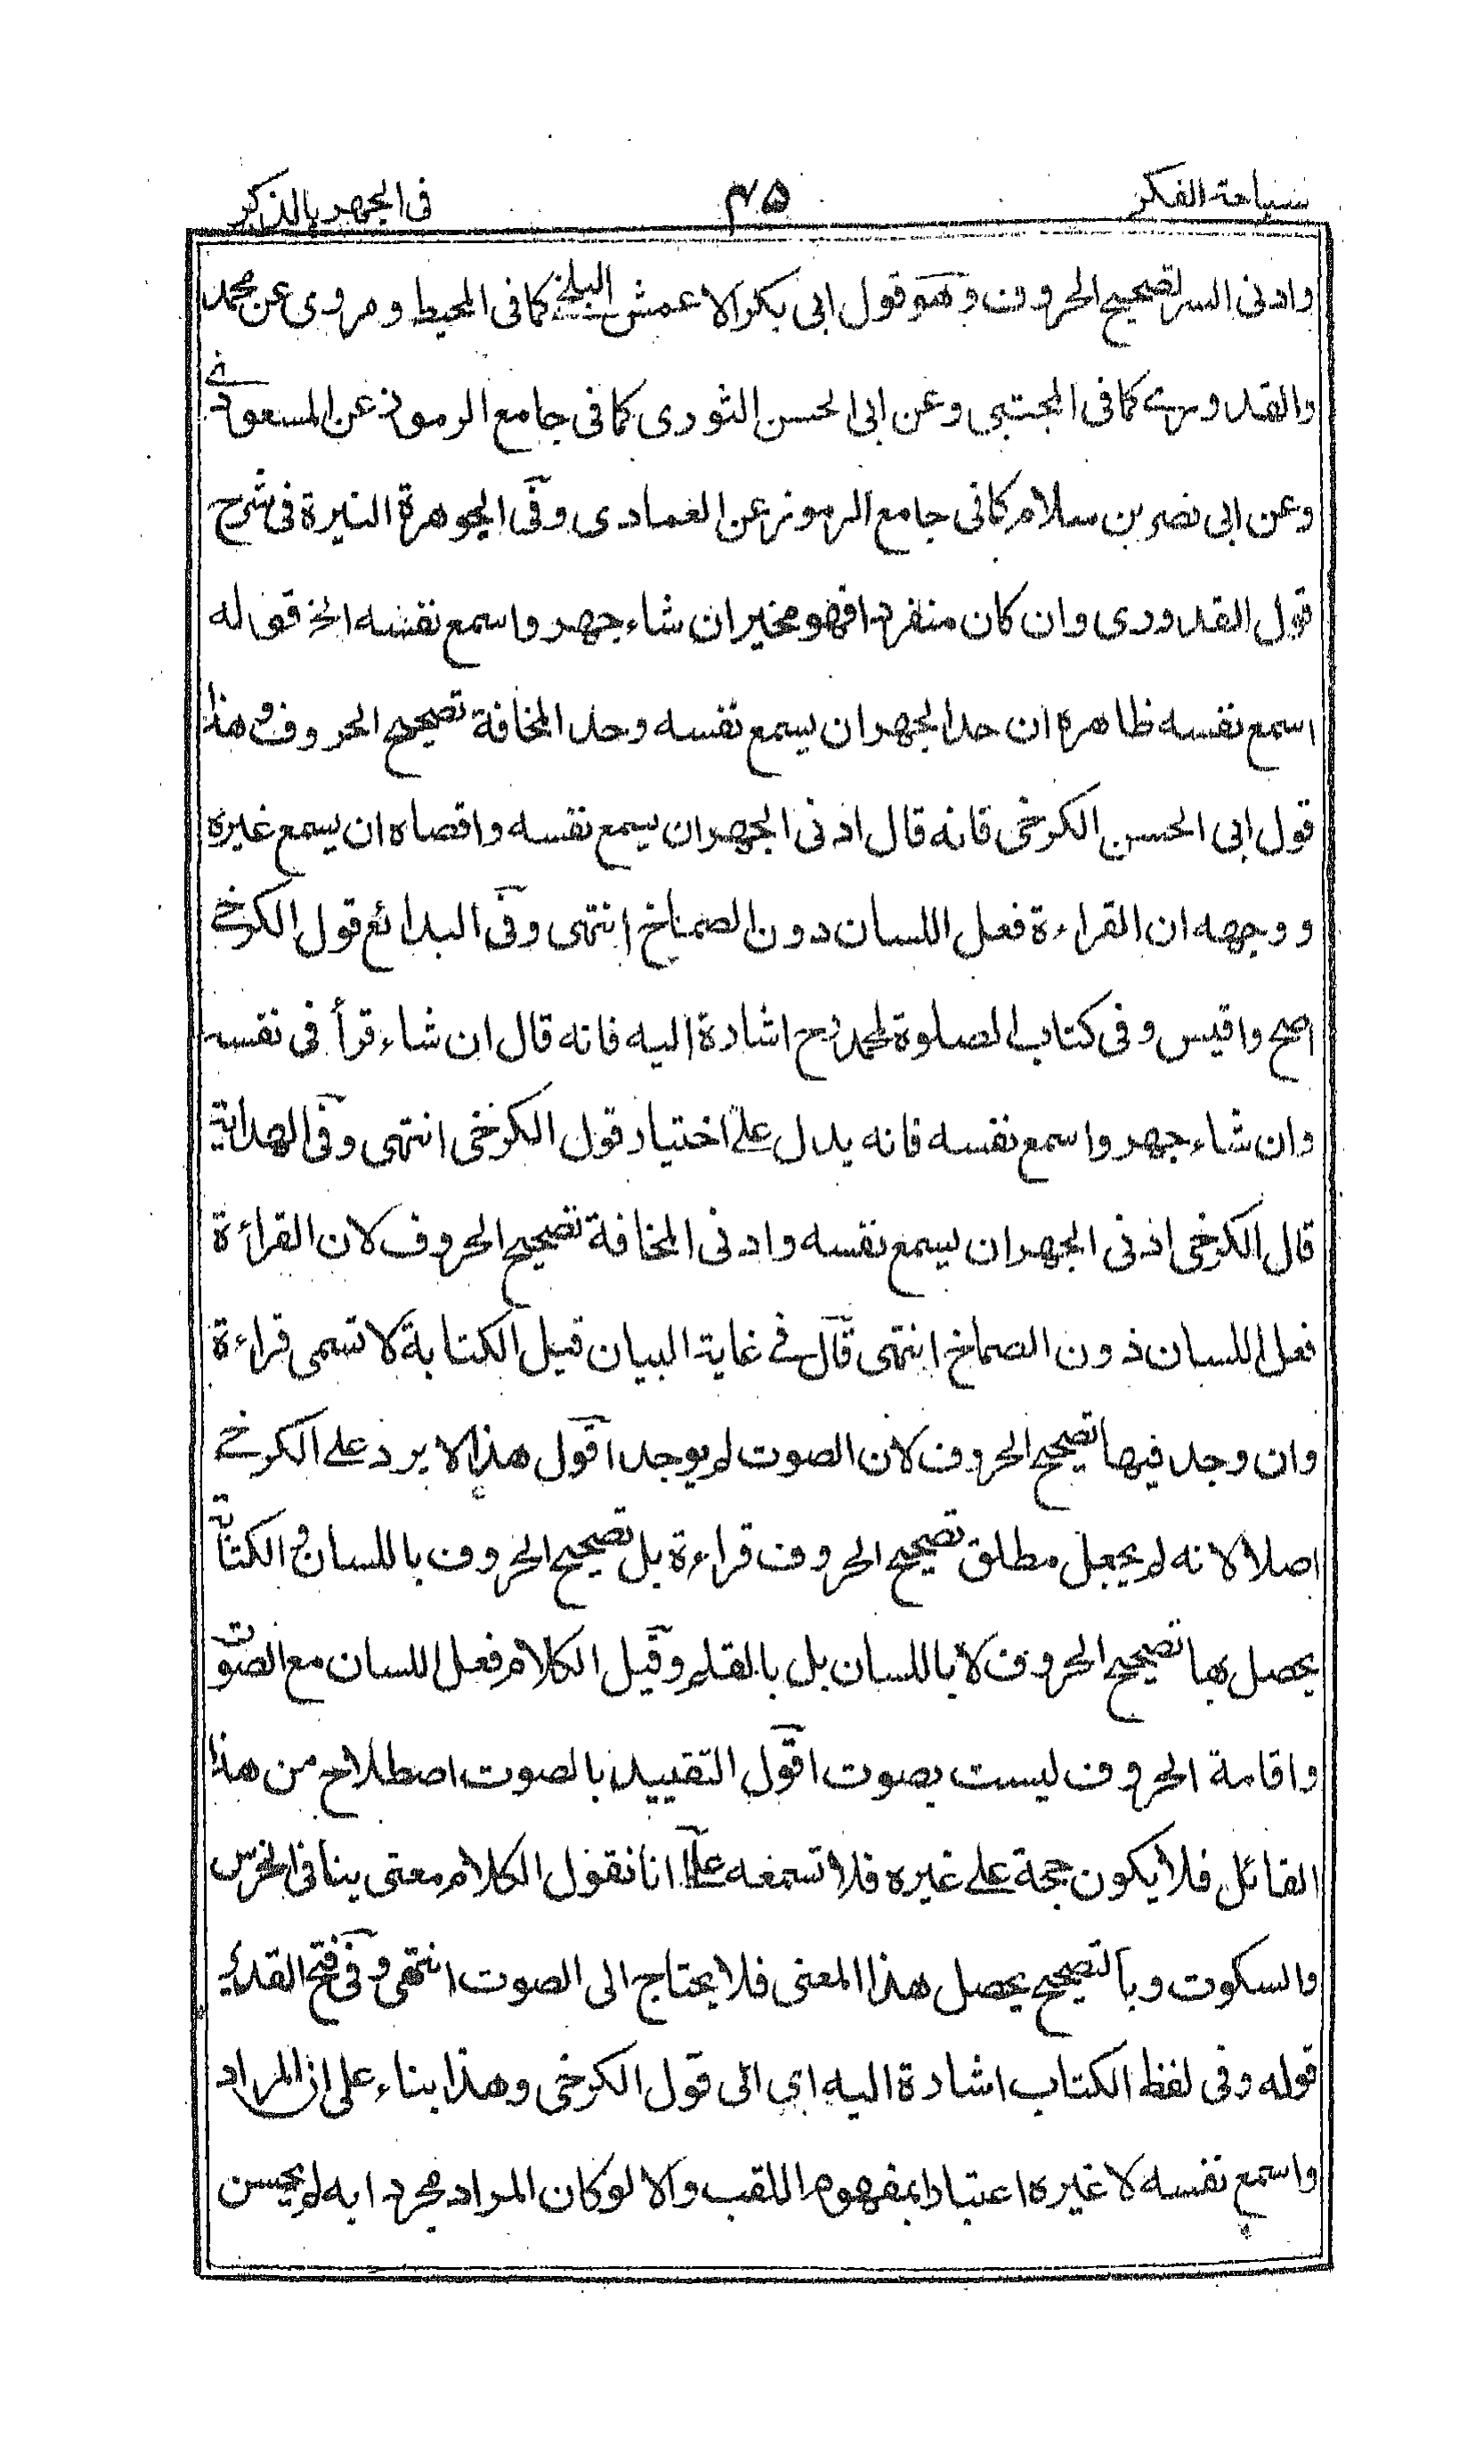 سباحة الفكر ٤٥ فى الجهر بالذكر
وادنى السر تصحيح الحروف وهو قول ابى بكر الاعمش البلخى كما فى المحيط ومروى عن محمد
والقدورى كما فى المجتبى وعن ابى الحسن الثورى كما فى جامع الرموز عن المسعودى
وعن ابى نصر بن سلام كما فى جامع الرموز عن العمادى وفى الجوهرة النيرة فى شرح
قول القدورى وان كان منفردا فهو مخير ان شاء جهر واسمع نفسه الخ قوله
اسمع نفسه ظاهره ان حد الجهر ان يسمع نفسه وحد المخافة تصحيح الحروف وهذا
قول ابى الحسن الكرخى فانه قال ادنى الجهر ان يسمع نفسه واقصاه ان يسمع غيره
ووجهه ان القراءة فعل اللسان دون الصماخ انتهى وفى البدائع قول الكرخى
اصح واقيس وفى كتاب الصلوة لمحمد رح اشارة اليه فانه قال ان شاء قرأ فى نفسه
وان شاء جهر واسمع نفسه فانه يدل على اختيار قول الكرخى انتهى وفى الهداية
قال الكرخى ادنى الجهر ان يسمع نفسه وادنى المخافة تصحيح الحروف لان القراءة
فعل اللسان دون الصماخ انتهى قال فى غاية البيان قيل الكتابة لا تسمى قراءة
وان وجد فيها تصحيح الحروف لان الصوت لم يوجد اقول هذا لا يرد على الكرخى
اصلا لانه لم يجعل مطلق تصحيح الحروف قراءة بل تصحيح الحروف باللسان والكتابة
يحصل بها تصحيح الحروف لا باللسان بل بالقلم وقيل الكلام فعل اللسان مع الصوت
واقامة الحروف ليست بصوت اقول التقييد بالصوت اصطلاح من هذا
القائل فلا يكون حجة على غيره فلا تسمعه على انا نقول الكلام معنى ينافى الخرس
والسكوت وبالتصحيح يحصل هذا المعنى فلا يحتاج الى الصوت انتهى وفى فتح القدير
قوله وفى لفظ الكتاب اشارة اليه اى الى قول الكرخى وهذا بناء على ان المراد
واسمع نفسه لا غيره اعتبارا بمفهوم اللقب والا لو كان المراد مجردا به لم يحسن